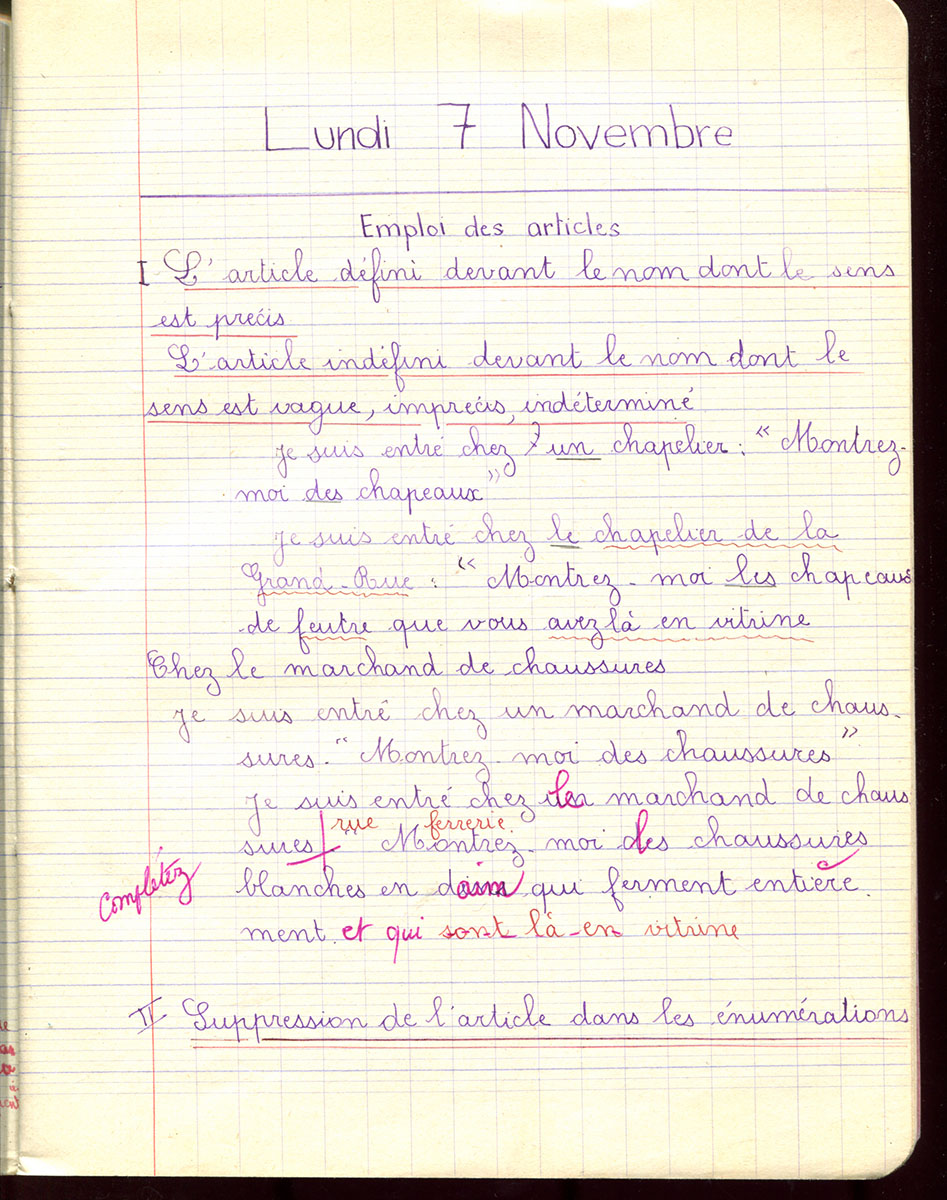 Lundi 7 Novembre
Emploi des articles
I L'article défini devant le nom dont le sens
est precis
L'article indéfini devant le nom dont le
sens est vague, imprecis, indéterminé
Je suis entré chez un chapelier : "Montrez-
moi des chapeaux"
Je suis entré chez le chapelier de la
Grand-Rue : "Montrez-moi les chapeaux
de feutre que vous avez là en vitrine
Chez le marchand de chaussures
Je suis entré chez un marchand de chaus-
sures. "Montrez-moi des chaussures"
Je suis entré chez le marchand de chaus
rue ferrerie.
sures "Montrez-moi les chaussures
Complétez
blanches en daim qui ferment entière
ment. et qui sont là-en vitrine
II Suppression de l'article dans les énumérations